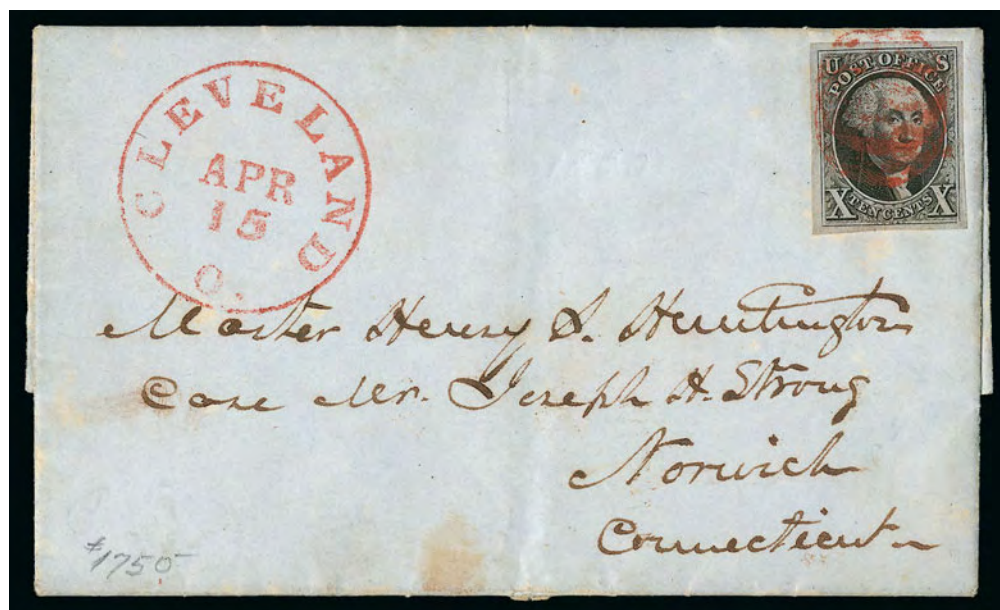 CLEVELAND O.
APR
15
U S
POST OFFICE
X TEN CENTS X
Master Henry S. Huntington
Care Mr. Joseph H. Strong
Norwich
Connecticut
$1750